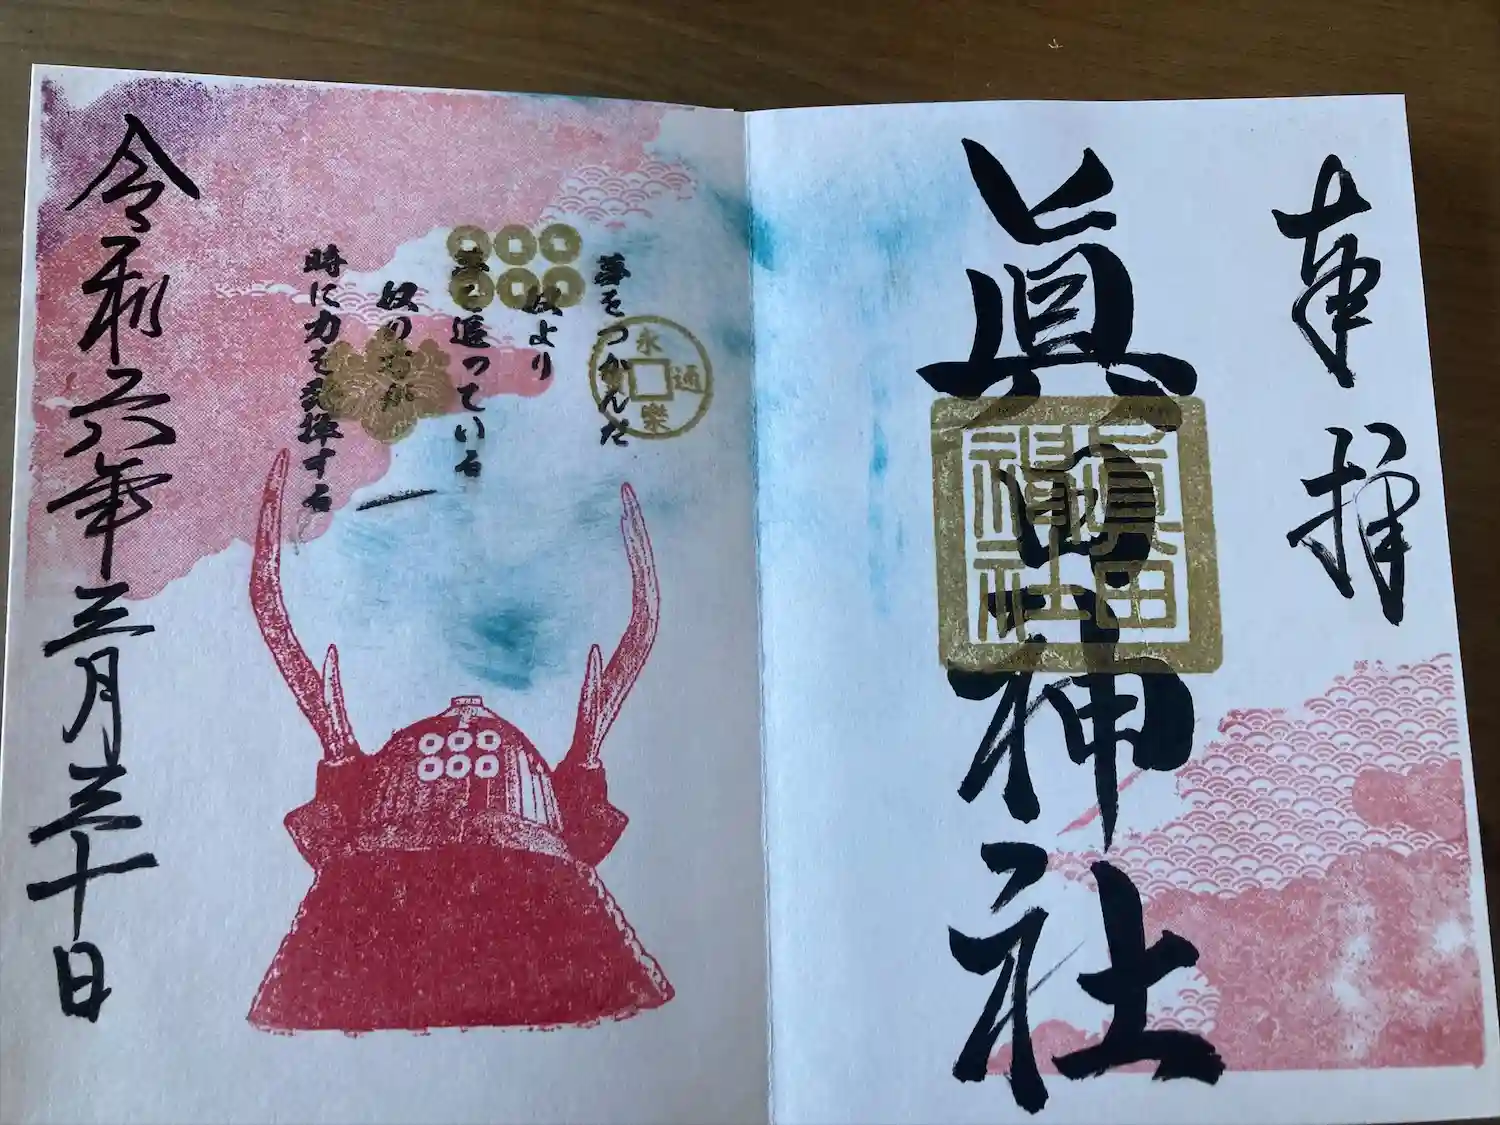 奉拝
眞田神社
眞田
神社
永樂通
夢をつかんだ
奴より
夢を追っている
奴の方が
時に力を発揮する
令和六年三月三十日